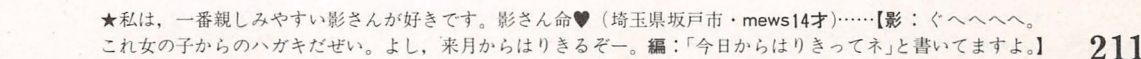 ★私は，一番親しみやすい影さんが好きです。影さん命♥（埼玉県坂戸市・mews14才）……【影：ぐへへへへ。
これ女の子からのハガキだぜい。よし，来月からはりきるぞー。編：「今日からはりきってネ」と書いてますよ。】
211